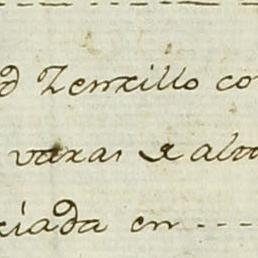 d Zencillo co
varas de alto
ciada en ----